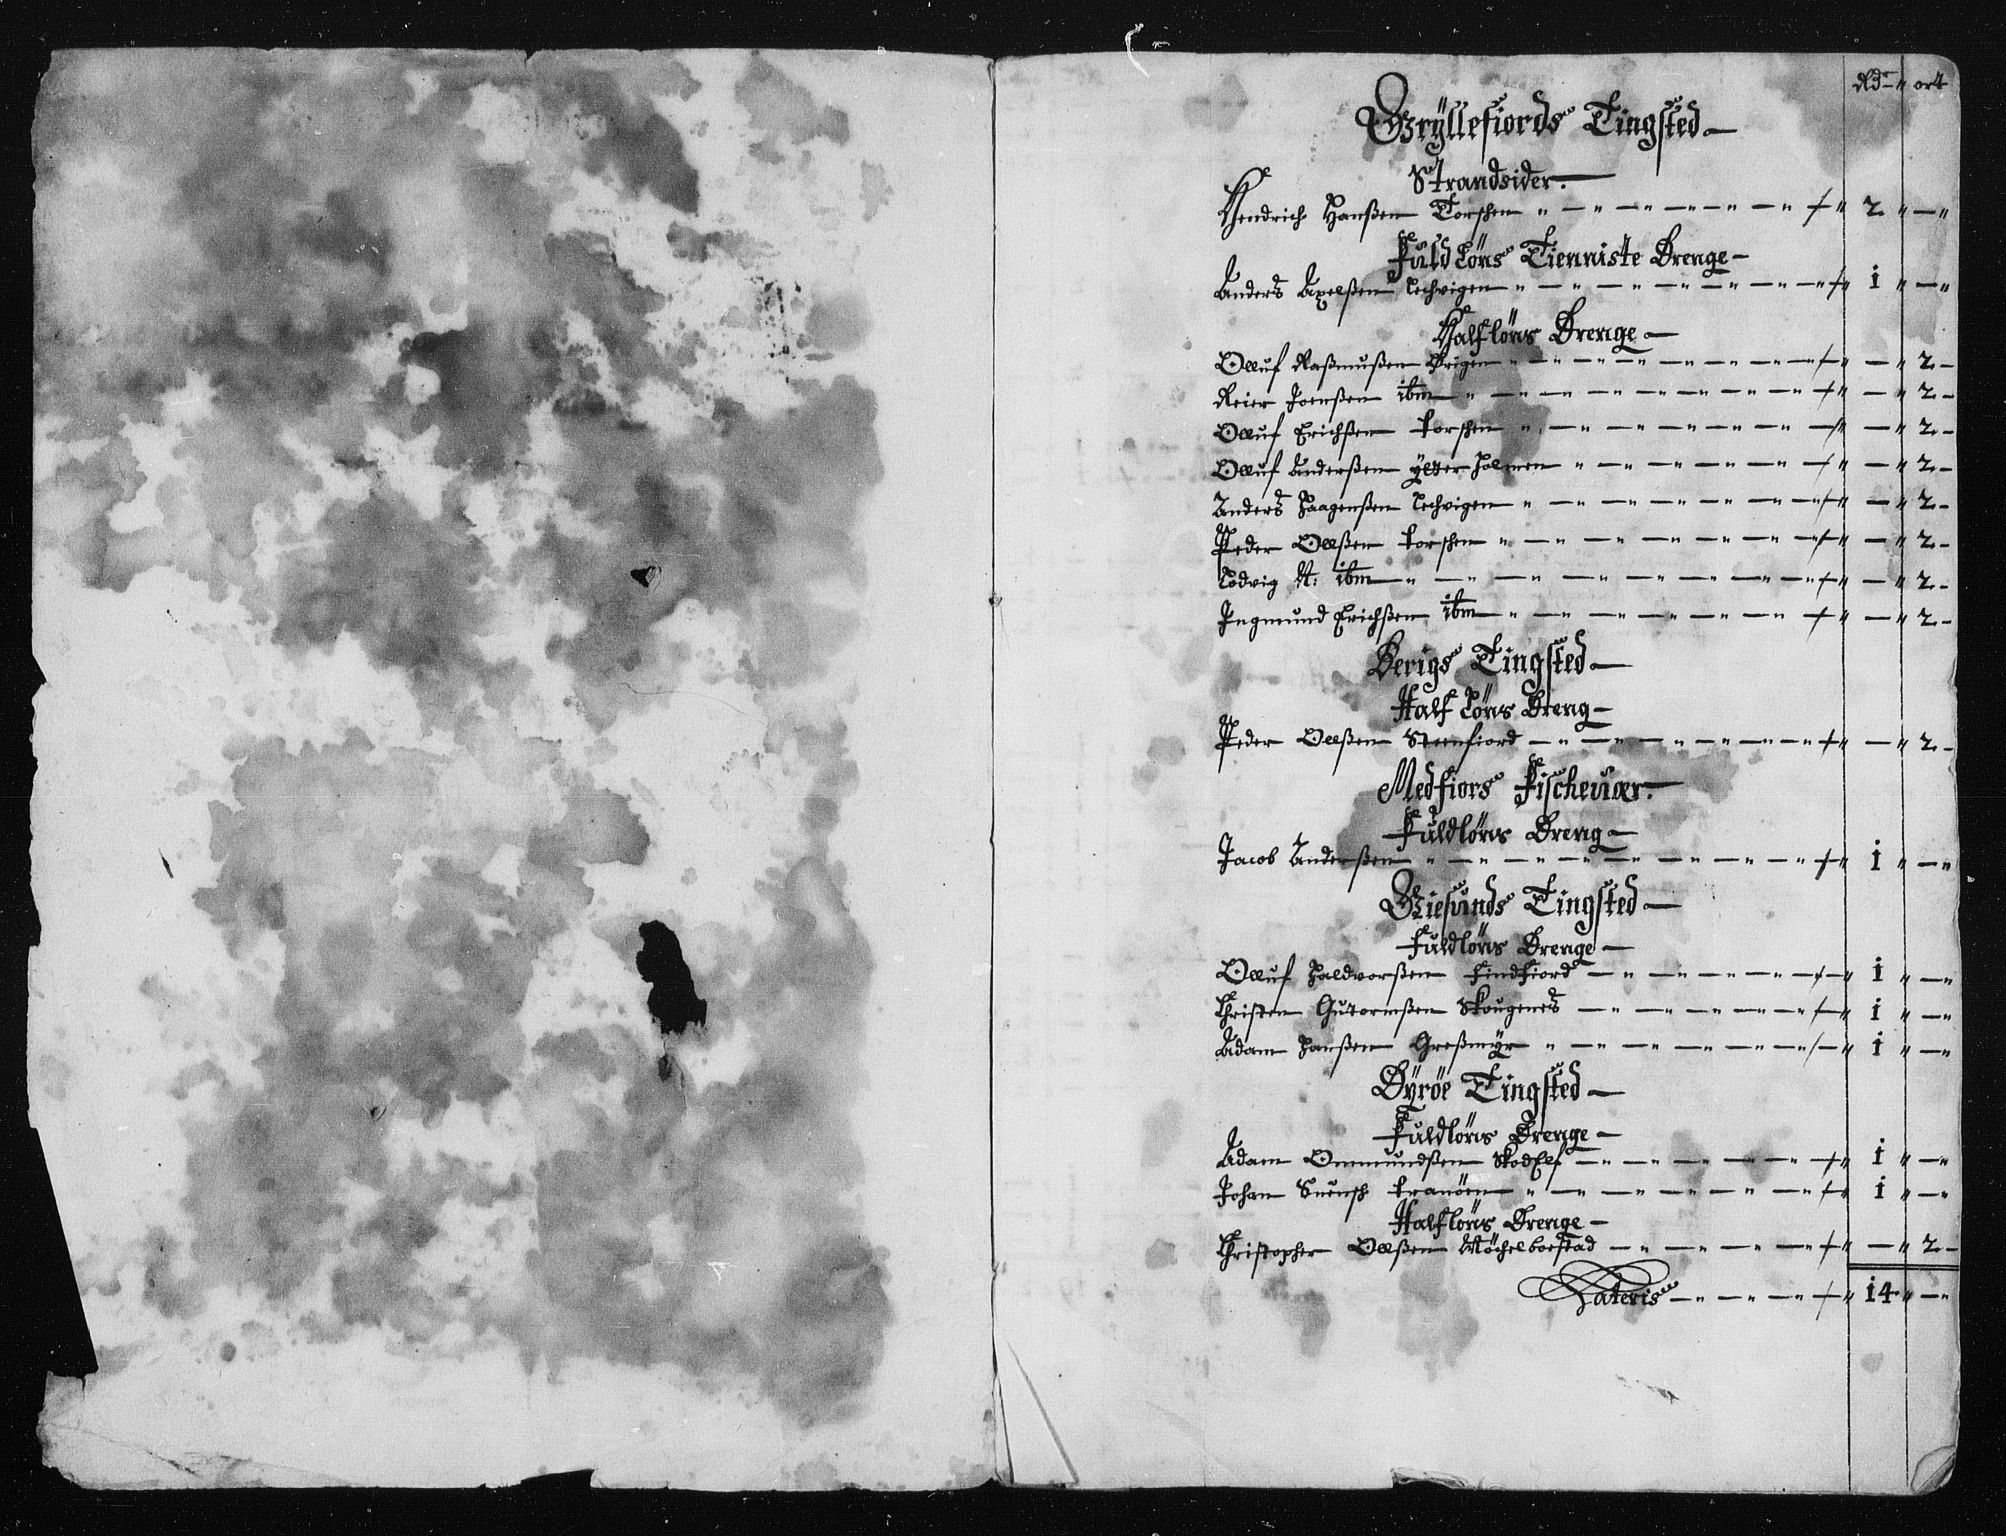 Rdr " ort
Gryllefiords Tingsted
Strandsider.
Hendrich Hanßen Torschen " 2 " — "
Fuld Löns Tienniste Drenge
Anders Axelßen Lechvigen " 1 " — "
Halflöns Drenge
Olluf Raßmußen Ørigen " — " 2 -
Reier Joenßen ibm " — " 2 -
Olluf Erichßen torschen " — " 2 -
Olluf Anderßen ytter holmen " — " 2 -
Anders Haagenßen Lechvigen " — " 2 -
Peder Olßen torschen " — " 2 -
Lodvig N: ibm " — " 2 -
Ingmund Erichßen ibm " — " 2 -
Bergs Tingsted
Half Löns Dreng
Peder Olßen Steenfiord " — " 2 -
Medfiors Fischevær.
Fuldlöns Dreng
Jacob Anderßen " 1 " — "
Giesunds Tingsted
Fuldlöns Drenge
Olluf Haldvorßen Findfiord " 1 " — "
Christen Gutormßen Skougenes " 1 " — "
Adam Hanßen Greßmÿr " 1 " — "
Dÿröe Tingsted
Fuldlöns Drenge
Adam Ommundßen SkodElf " 1 " — "
Johan Suensch tranöen " 1 " — "
Halflöns Drenge
Christopher Olßen Möchelboestad " — " 2 -
Lateris " 14 " — "